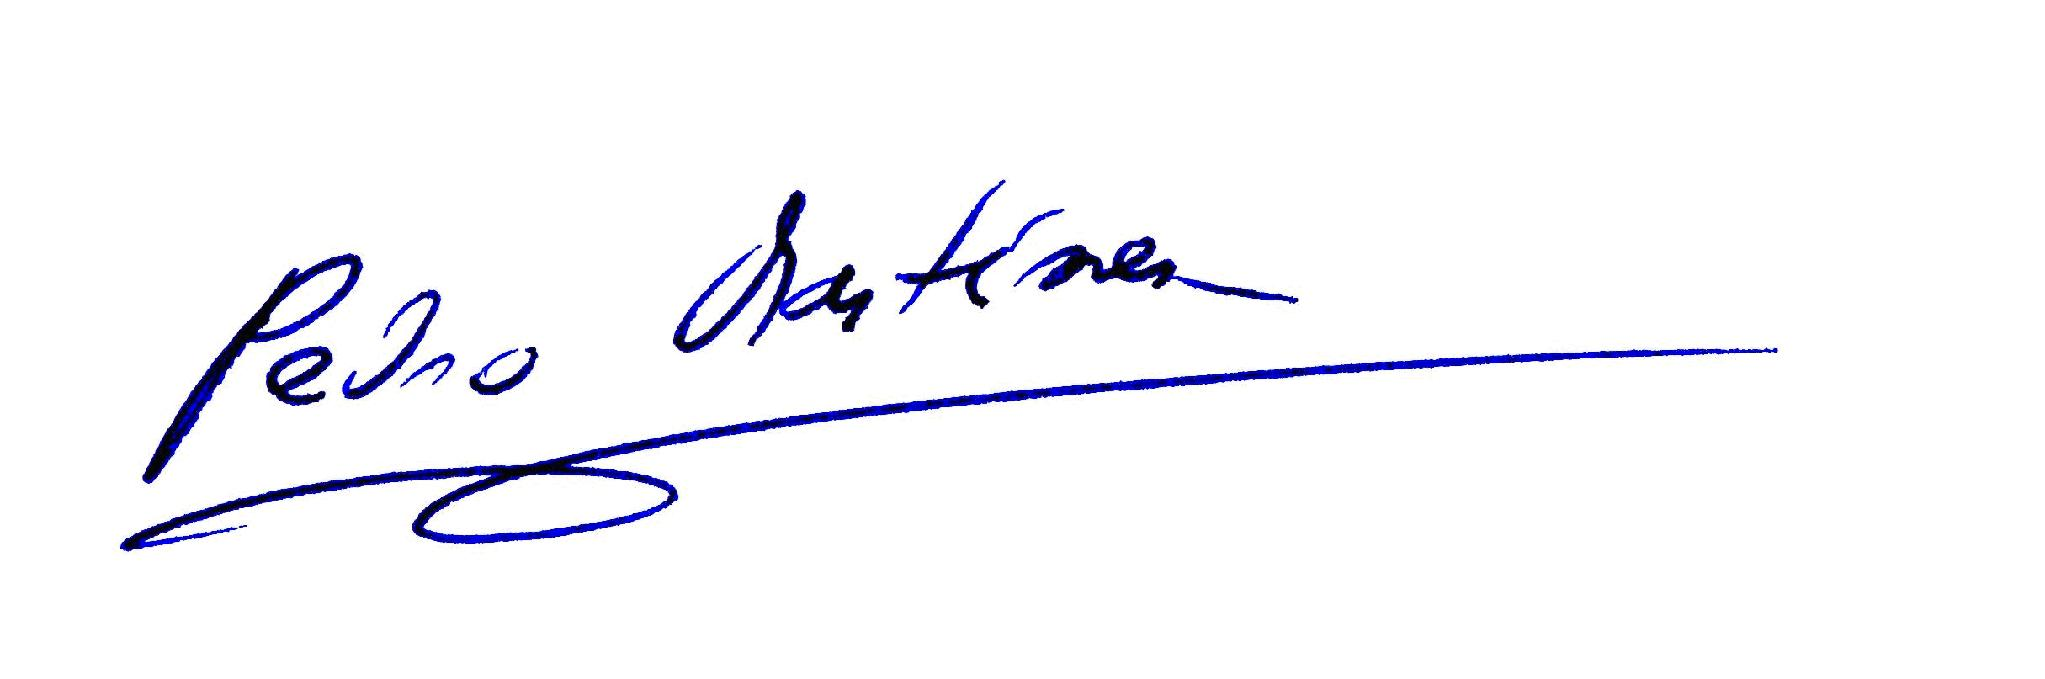 Pedro Martínez